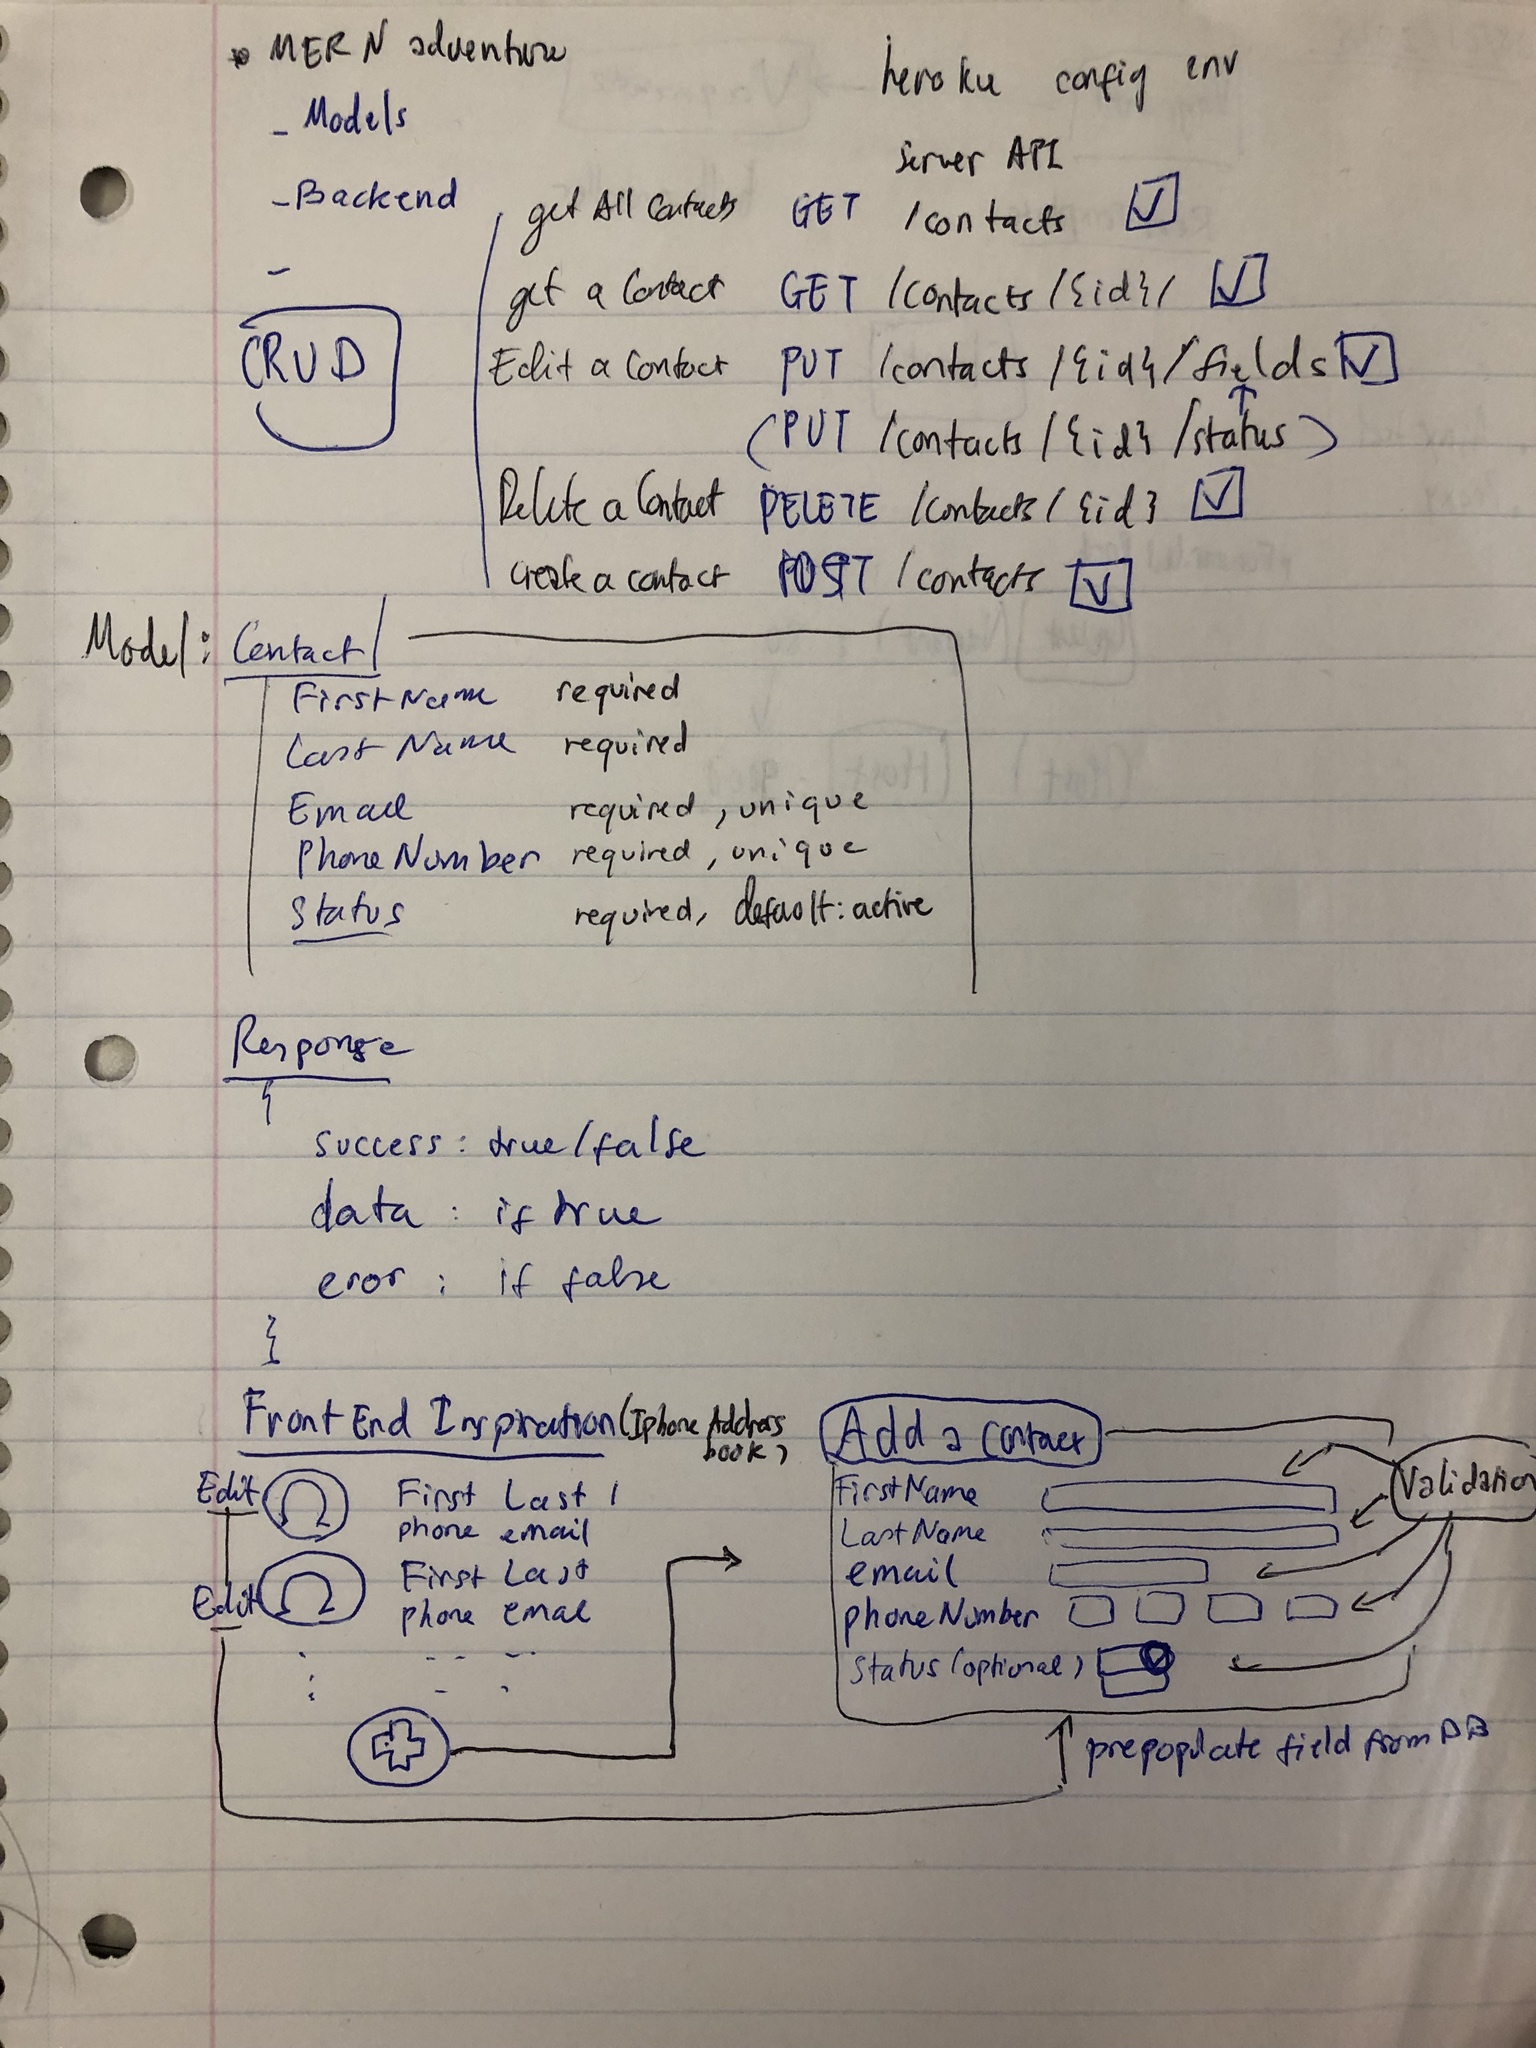 * MERN adventure
heroku config env
- Models
Server API
- Backend
get All Contacts GET /contacts
-
get a Contact GET /contacts/{id}/
CRUD
Edit a Contact PUT /contacts/{id}/fields
(PUT /contacts/{id}/status)
Delete a Contact DELETE /contacts/{id}
Create a contact POST /contacts
Model: Contact
FirstName required
Last Name required
Email required, unique
PhoneNumber required, unique
Status required, default: active
Response
{
success: true/false
data : if true
eror : if false
}
Front End Inspiration (Iphone Address
book)
Edit
First Last 1
phone email
Edit
First Last
phone emai
Add a contact
Validation
FirstName
LastName
email
phoneNumber
status (optional)
prepoplate field from DB